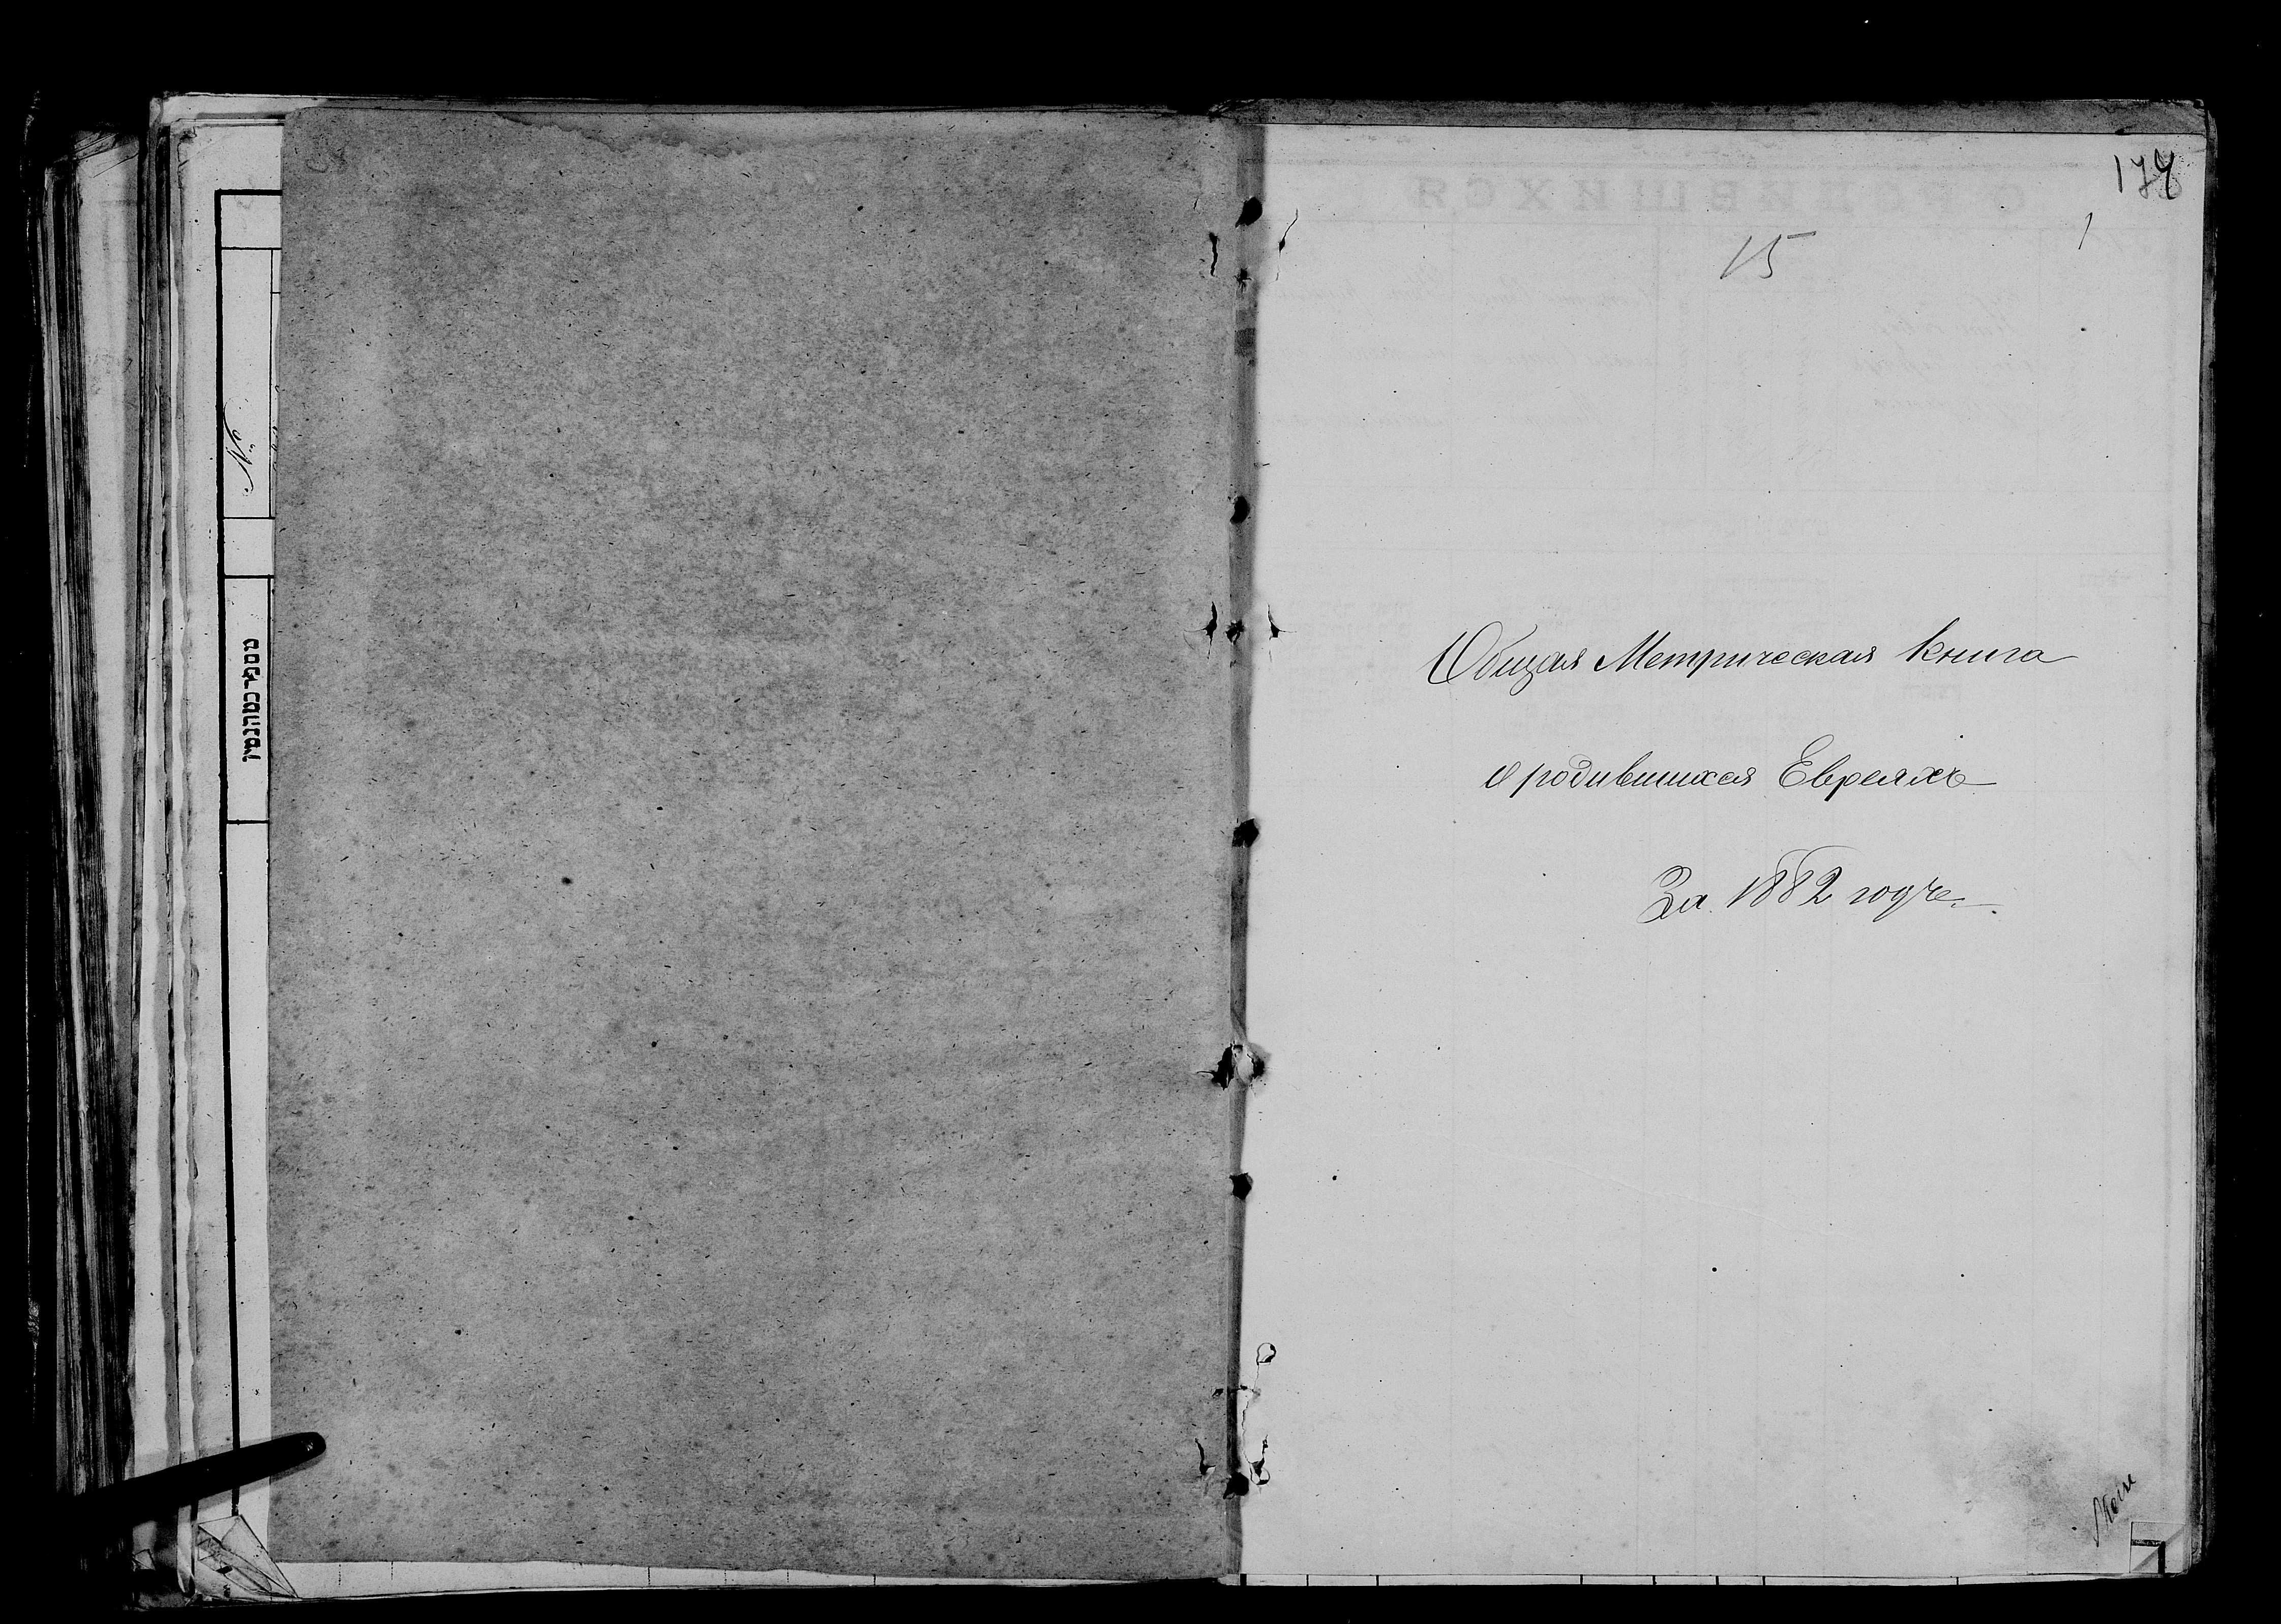 178
1
15
Общая Метрическая книга
о родившихся Евреяхъ
За 1882 годъ.
№